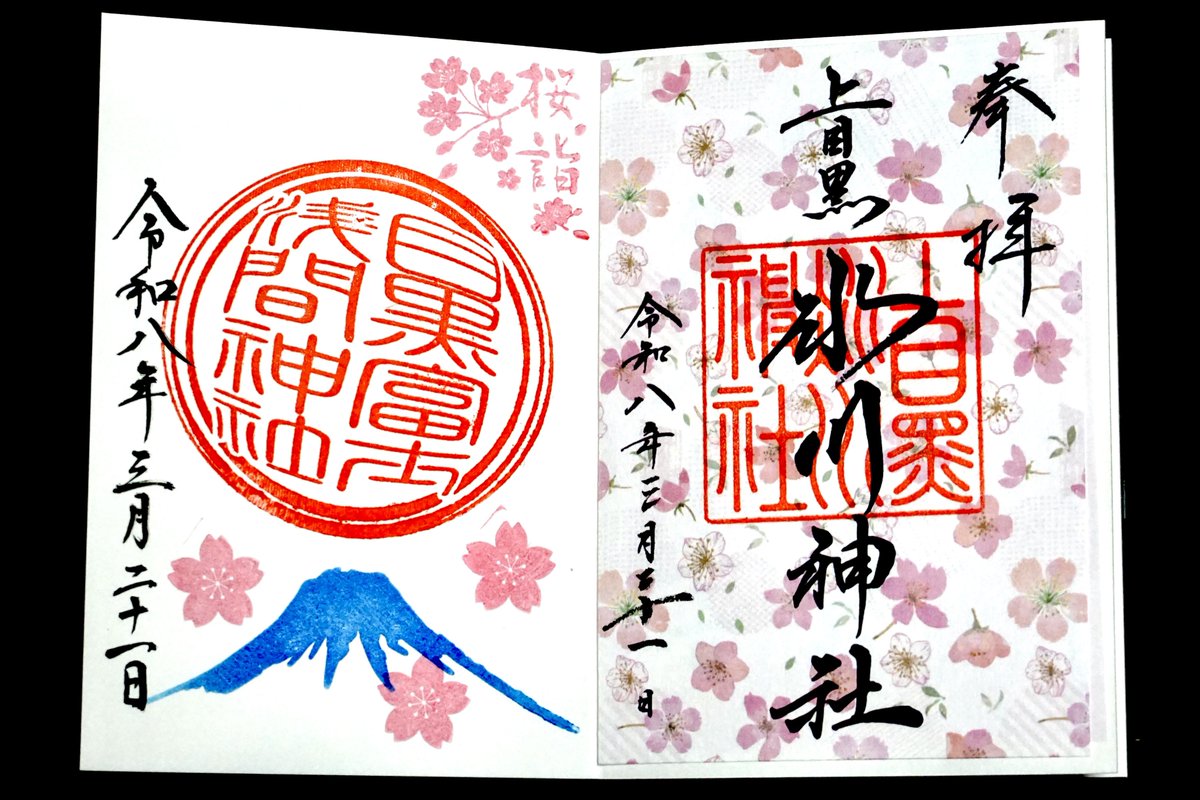 奉拝
上目黒氷川神社
上目黒
氷川
神社
令和八年三月二十一日
桜詣
目黒富士
浅間神社
令和八年三月二十一日